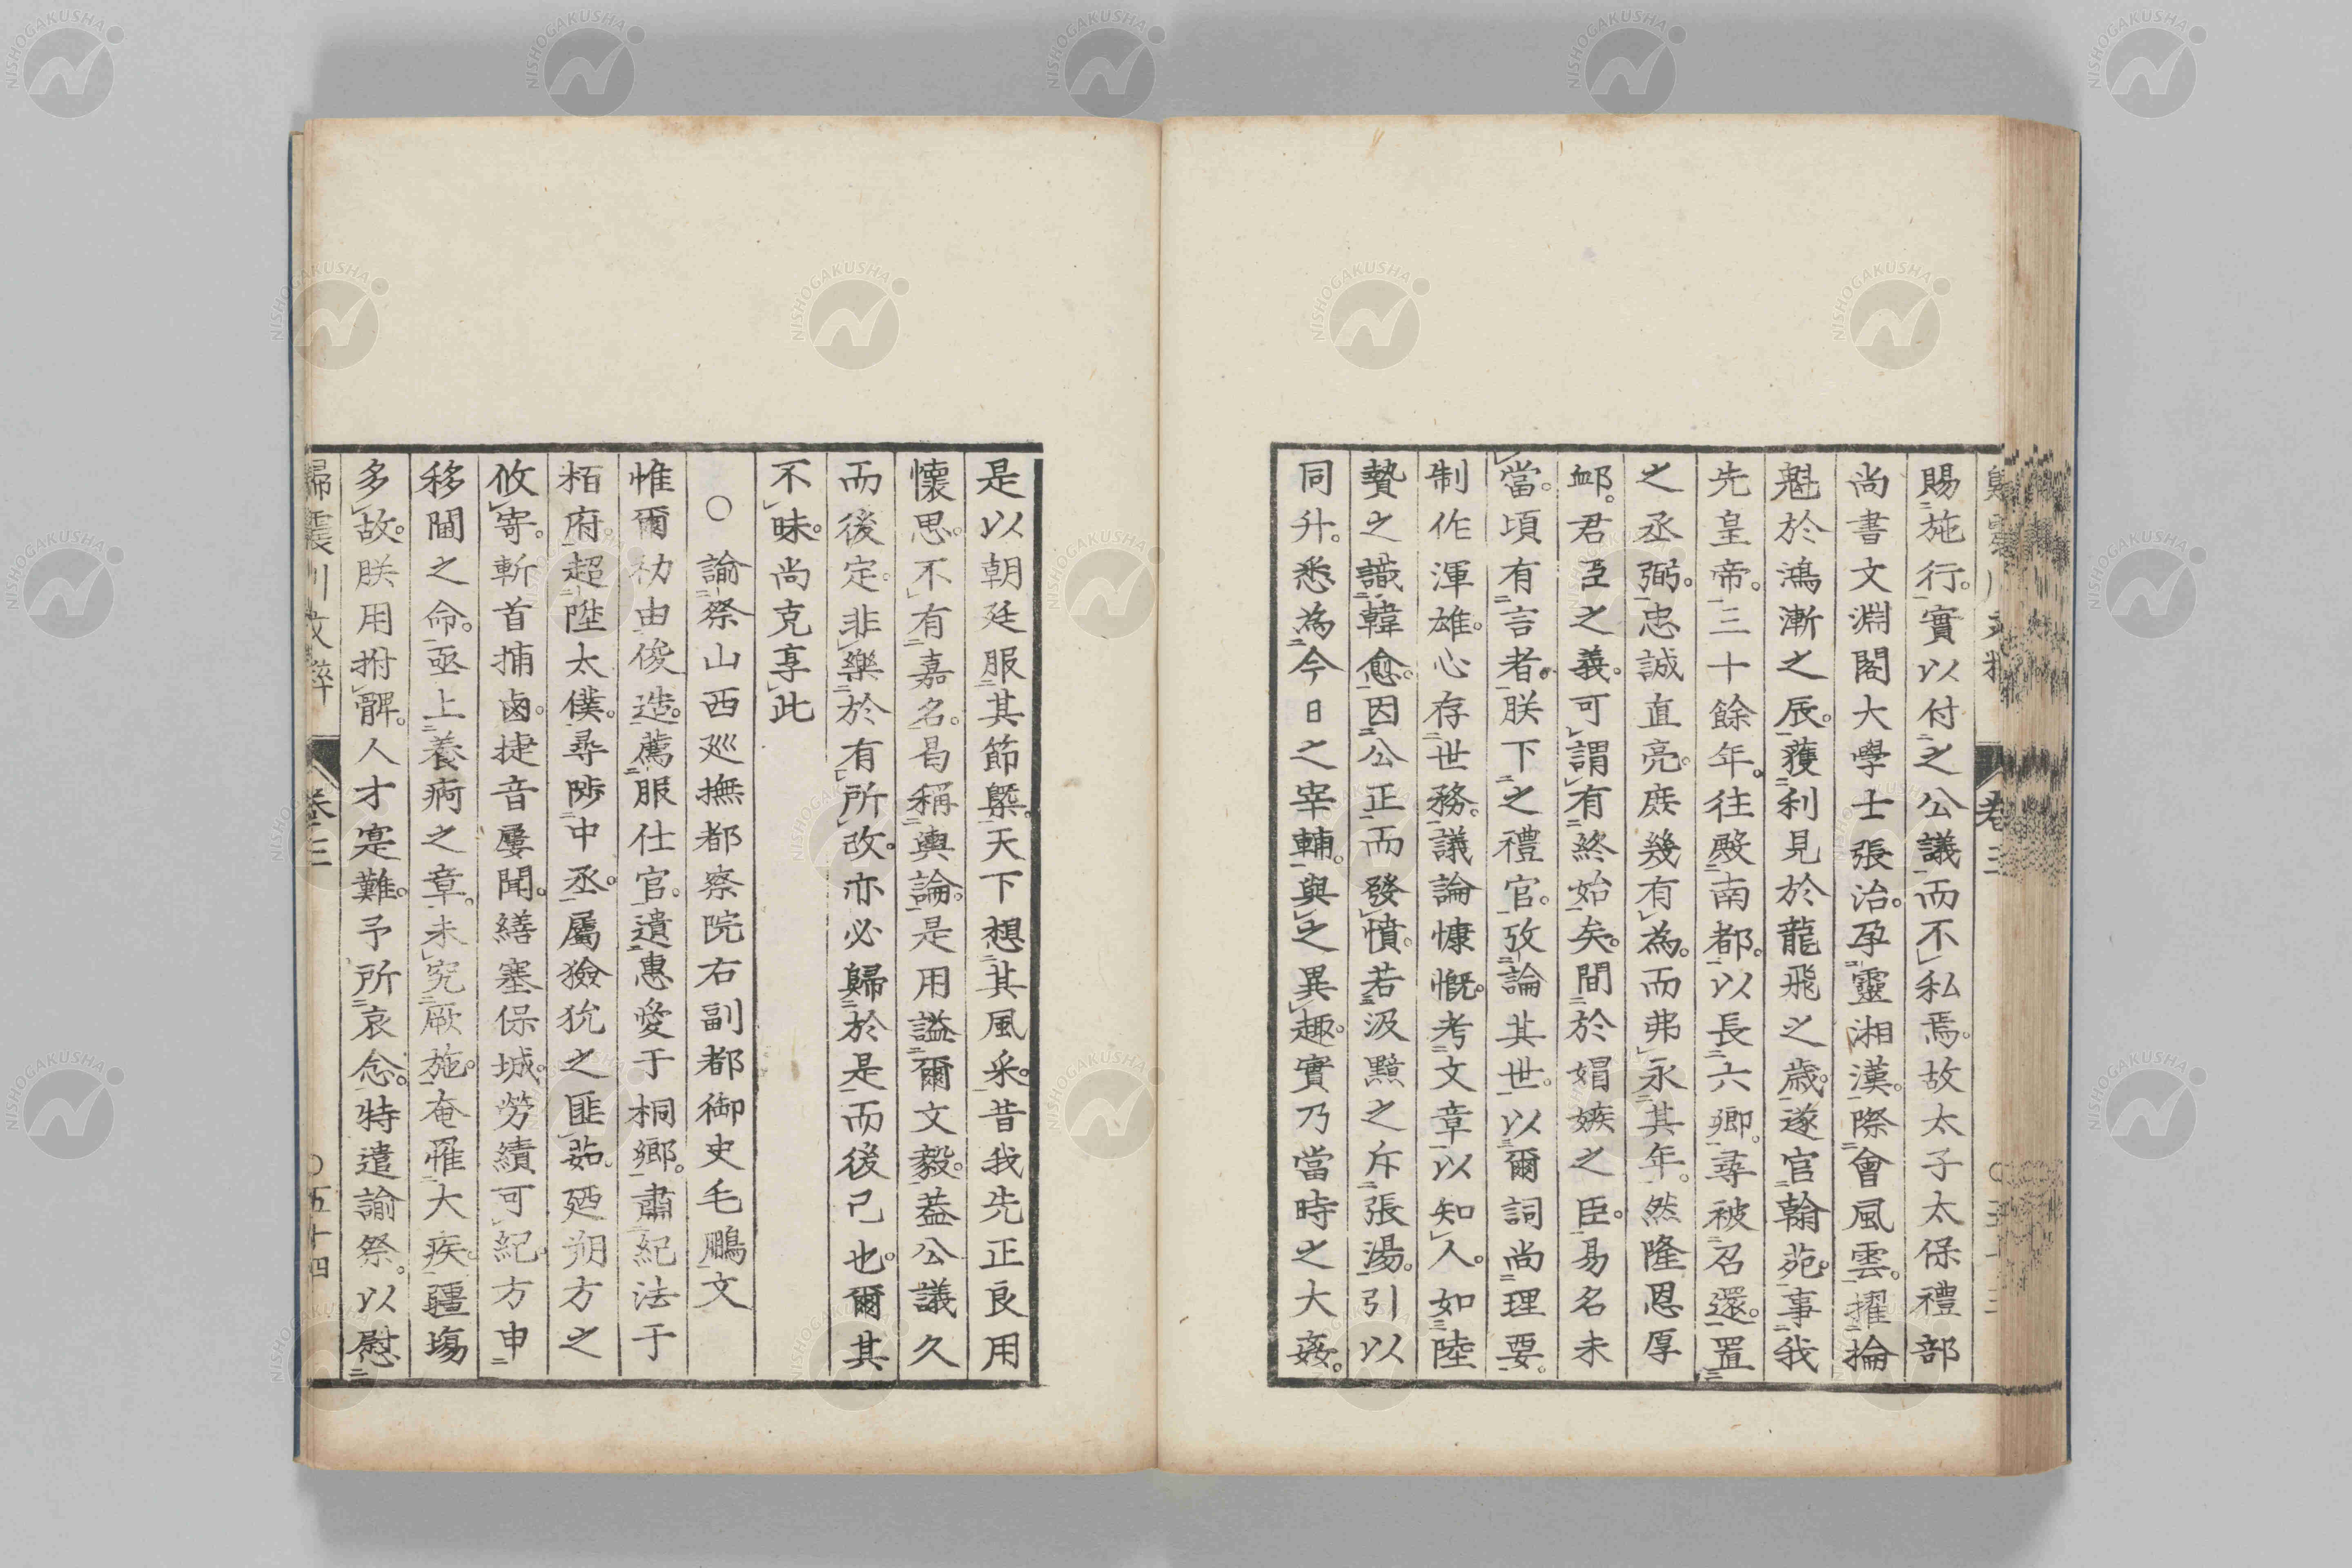 賜施行。實以付之公議而不私焉。故太子太保禮部
尚書文淵閣大學士張治。孕靈湘漢。際會風雲。擢掄
魁於鴻漸之辰。獲利見於龍飛之歲。遂官翰苑。事我
先皇帝。三十餘年。往殿南都。以長六卿。尋被召還。置
之丞弼。忠誠直亮。庶幾有為。而弗永其年。然隆恩厚
卹。君臣之義。可謂有終始矣。間於娼嫉之臣。易名未
當。頃有言者。朕下之禮官。攷論其世。以爾詞尚理要。
制作渾雄。心存世務。議論慷慨。考文章以知人。如陸
贄之識韓愈。因公正而發憤。若汲黯之斥張湯。引以
同升。悉為今日之宰輔。與之異趣。實乃當時之大姦。
卷三
是以朝廷服其節槩。天下想其風采。昔我先正良用
懷思。不有嘉名。曷稱輿論。是用謚爾文毅。蓋公議久
而後定。非樂於有所改。亦必歸於是而後已也。爾其
不昧。尚克享此
○諭祭山西巡撫都察院右副都御史毛鵬文
惟爾初由俊造。薦服仕官。遺惠愛于桐鄉。肅紀法于
栢府。超陞太僕。尋陟中丞。屬獫狁之匪茹。廼朔方之
攸寄。斬首捕鹵。捷音屢聞。繕塞保城。勞績可紀。方申
移閫之命。亟上養痾之章。未究厥施。奄罹大疾。疆埸
多故。朕用拊髀。人才寔難。予所哀念。特遣諭祭。以慰
歸震川文粹 卷三 ○五十四